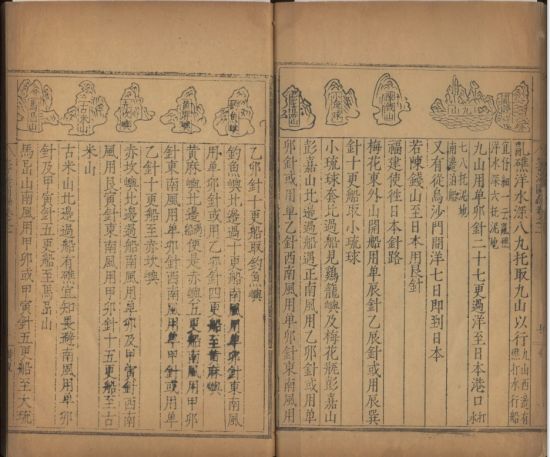 九山
小琉球
彭嘉山
亂礁洋水深八九托取九山以行 九山西邊有礁打水行船
宜仔細一云亂礁洋水深六托泥地
九山用單卯針二十七更過洋至日本港口 打水
七八托泥地南邊泊船
又有從烏沙門開洋七日即到日本
若陳錢山至日本用艮針
福建使往日本針路
梅花東外山開船用單辰針乙辰針或用辰巽
針十更船取小琉球
小琉球套北過船見鷄籠嶼及梅花瓶彭嘉山
彭嘉山北邊過船遇正南風用乙卯針或用單
卯針或用單乙針西南風用單
釣魚嶼
黃麻嶼
赤坎嶼
古米山
馬岊山
乙卯針十更船取釣魚嶼
釣魚嶼北邊過十更船南風用單卯針東南風
用單卯針或用乙卯針四更船至黃麻嶼
黃麻嶼北邊過船便是赤嶼五更船南風用甲卯
針東南風用單卯針西南風用單甲針或用單
乙針十更船至赤坎嶼
赤坎嶼北邊過船南風用單卯及甲寅針西南
風用艮寅針東南風用甲卯針十五更船至古
米山
古米山北邊過船有礁宜知畏避南風用單卯
針及甲寅針五更船至馬岊山
馬岊山南風用甲卯或甲寅針五更船至大琉